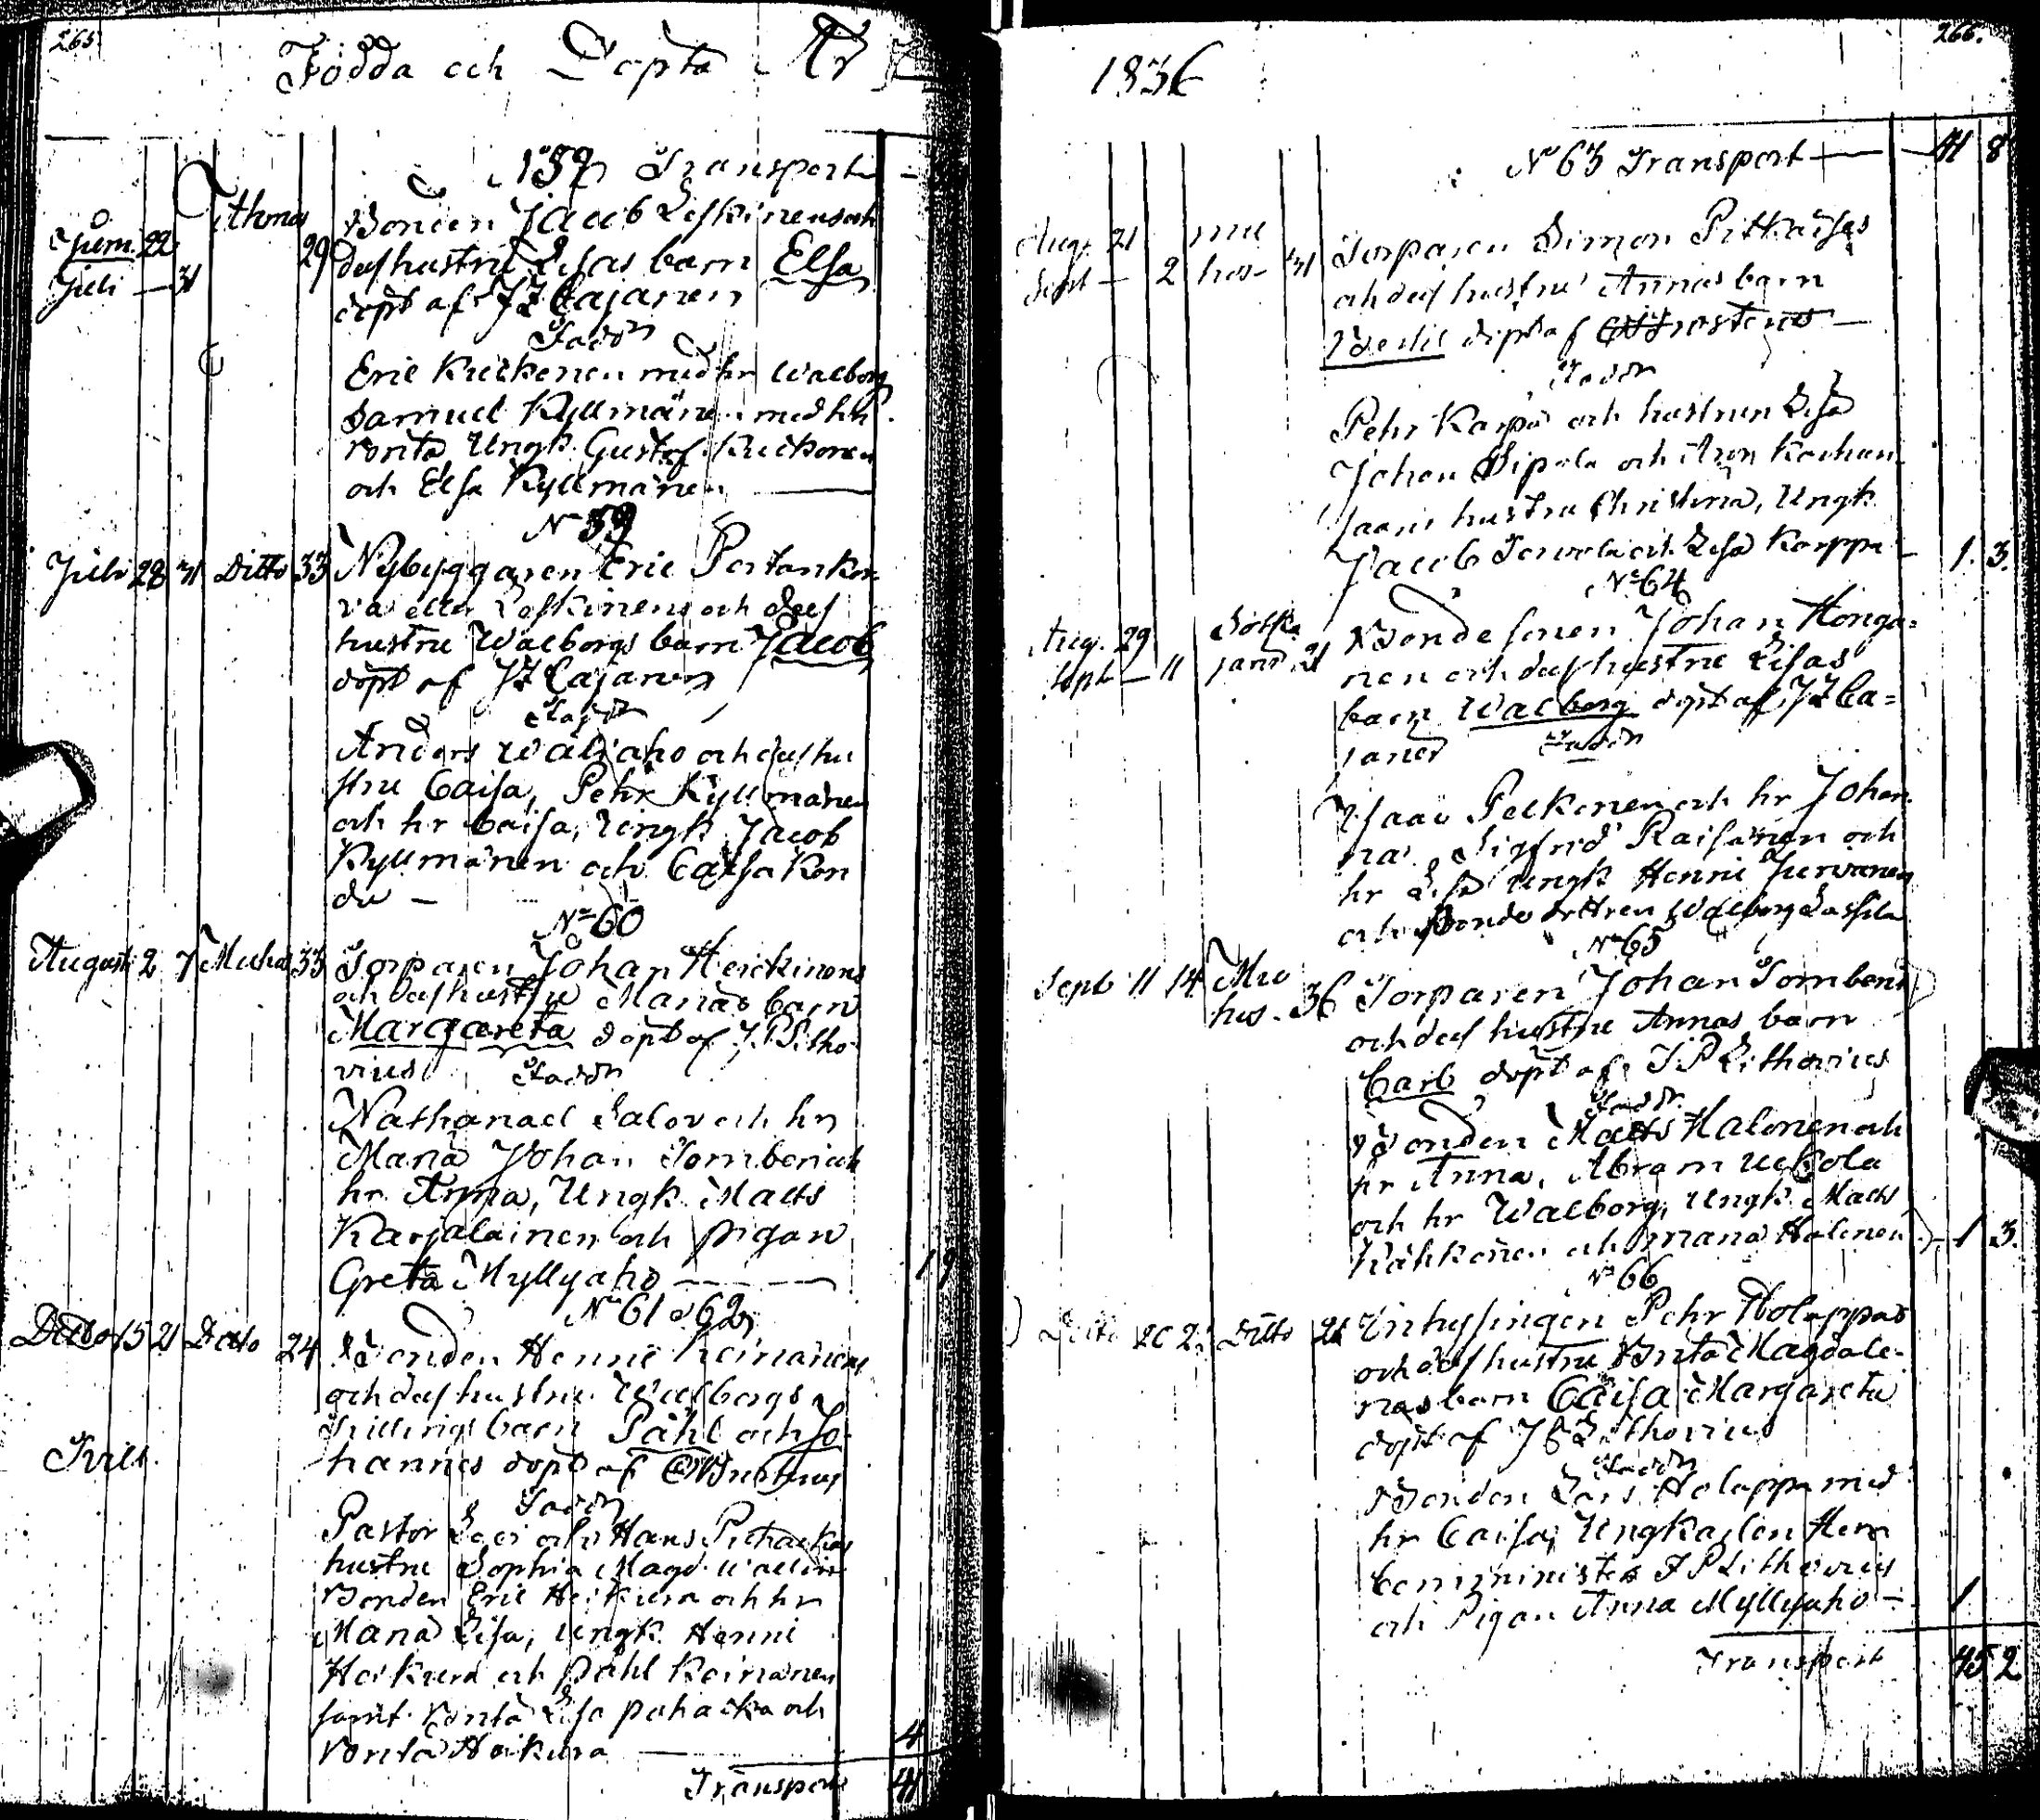 265.
Födda och Döpta År
Transport
Bonden Jacob Leskinens och
Juni 22 Ithonas 29 dess hustru Lisas barn Elsa
Juli 31 döpt af J Z Cajanen
Faddr
Eric Kickonen med hr Walborg
Samuel Kyllmänen med hr
Brita, Ungk. Gustaf Kickonen
och Elsa Kyllmänen
N 59
Juli 28 31 Ditto 33 Nybyggaren Eric Portanko-
va eller Leskinens och dess
hustru Walborgs barn Jacob
döpt af J Z Cajanen
Faddr
Anders Waliaho och dess hu
stru Caisa, Pehr Kyllmänen
och hr Caisa, Ungk Jacob
Kyllmänen och Caisa Kon
du
N 60
Augusti 2 7 Muho 33 Torparen Johan Heickinens
och dess hustru Marias barn
Margareta döpt af J. P Litho-
vius Faddr
Nathanael Salov och hr
Maria Johan Tornberg och
hr Anna, Ungk. Matts
Karjalainen och pigan
Greta Myllyaho
N 61 o 62
Ditto 15 21 Ditto 24 Bonden Henric Koinanens
och dess hustru Walborgs
Tvill. Tvillings barn Påhl och Jo-
hannes döpt af
Faddr
Pastor och Hans
hustru Sophia Magd. Wallin
Bonden Eric Heikura och hr
Maria Lisa, Ungk. Henric
Heikura och Påhl Koinanen
samt Brita Lisa Pohacka och
Brita Heikura 4
Transport 41
266.
1836
N 63 Transport 41 8
Aug. 21 Mu Torparen Simon Pitkäises
Sept 2 hos 31 och dess hustru Annas barn
Bertil döpt af C N Frosterus
Faddr
Pehr Karpa och hustrun Lisa
Johan Sipola och Aron Kachan-
saari hustru Christina, Ungk
Jacob Tervola och Lisa Karppa 1. 3.
N 64
Aug. 29 Sotka Bondesonen Johan Honga-
Sept 11 jarvi 21 nen och dess hustru Lisas
barn Walborg döpt af J Z Ca-
janen Faddr
Isaac Pelkonen och hr Johan-
na, Sigfrid Raisänen och
hr Lisa Ungk Henric Jurvanen
och Bonde dottren Walborg Lassila
N 65
Sept 11 14 Mu Torparen Johan Tornberg
hos. 36 och dess hustru Annas barn
Carl döpt af J P Lithovius
Faddr.
Bonden Matts Halonen och
hr Anna, Abram Uckola
och hr Walborg, Ungk Matts
Kähkönen och Maria Halonen 1 3.
N 66
Ditto Ditto Inhysingen Pehr Holappas
och dess hustru Brita Magdale-
nas barn Caisa Margareta
döpt af J P Lithovius
Faddr
Bonden Lars Holappa med
hr Caisa, Ungkarlen Herr
Comminister J P Lithovius
och Pigan Anna Myllyaho 1
Transport 45 2